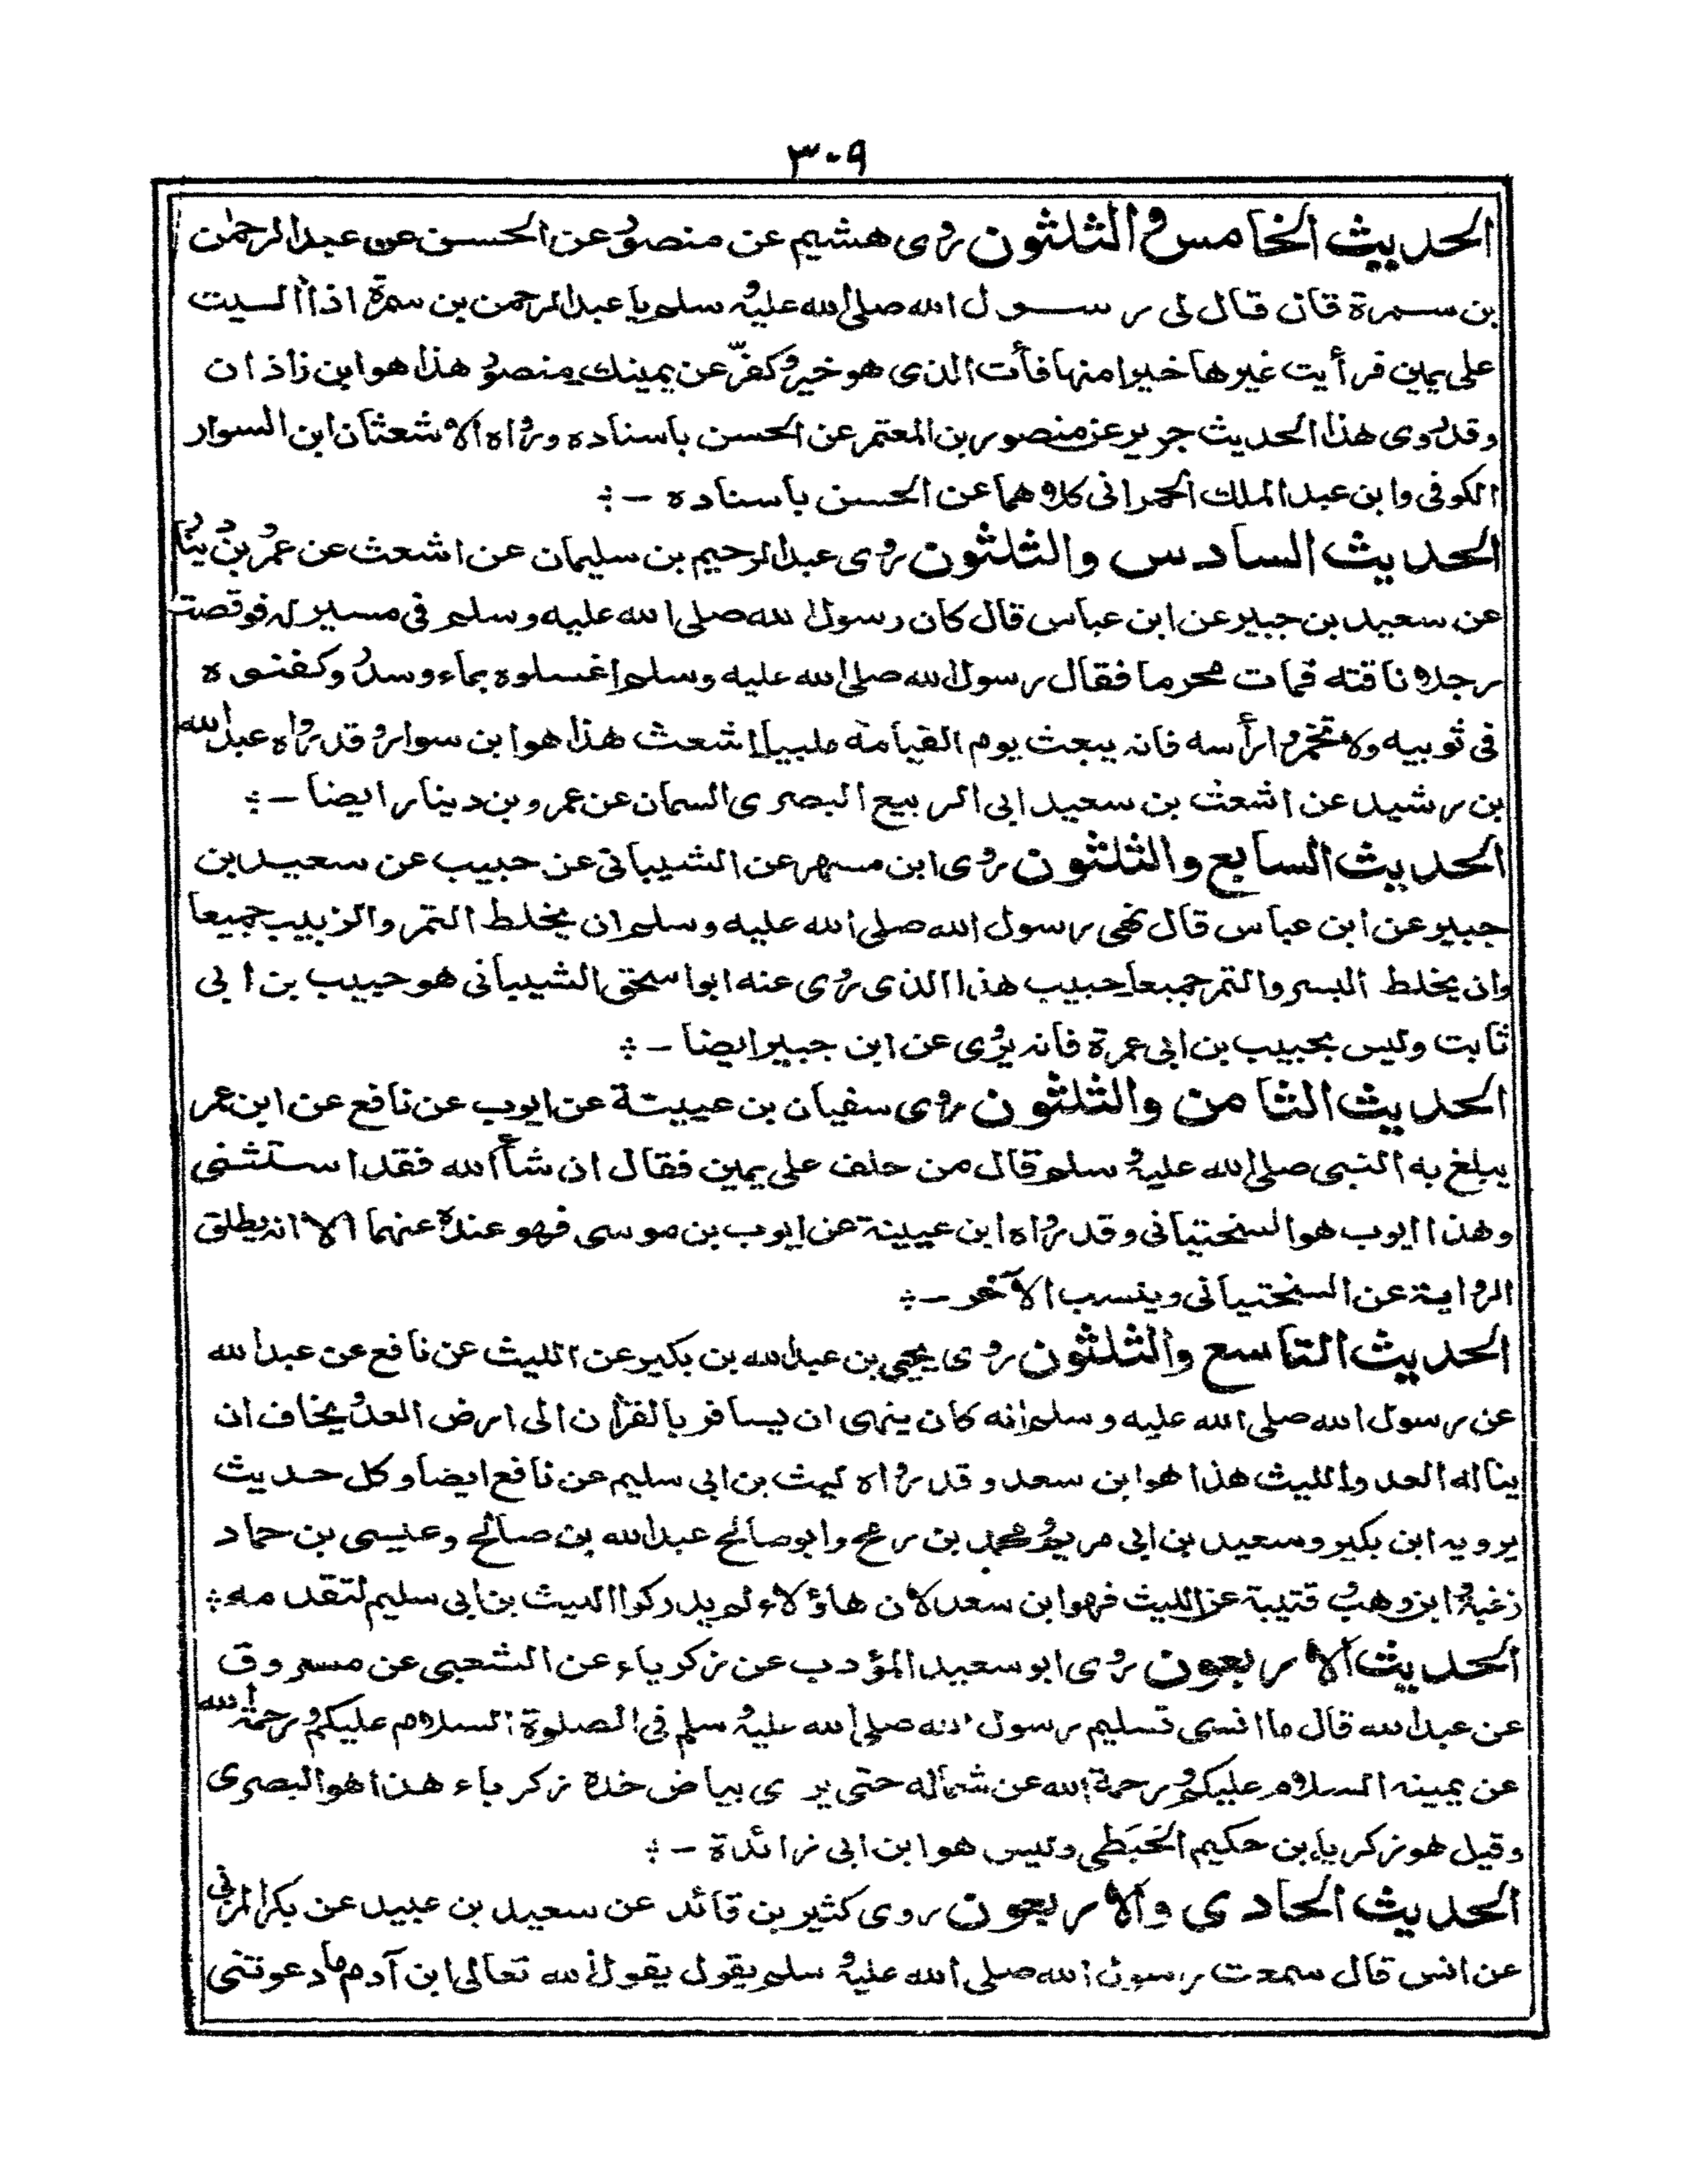 ٣٠٩
الحديث الخامس والثلثون روى هشيم عن منصور عن الحسن عن عبد الرحمٰن
بن سمرة قال قال لى رسول الله صلى الله عليه وسلم يا عبد الرحمن بن سمرة اذا آليت
على يمين فرأيت غيرها خيرا منها فأت الذى هو خير وكفّر عن يمينك منصور هذا هو ابن زاذان
وقد روى هذا الحديث جرير عن منصور بن المعتمر عن الحسن باسناده ورواه الاشعثان ابن السوار
الكوفى وابن عبد الملك الحمرانى كلاهما عن الحسن باسناده –
الحديث السادس والثلثون روى عبد الرحيم بن سليمان عن اشعث عن عمرو بن دينار
عن سعيد بن جبير عن ابن عباس قال كان رسول الله صلى الله عليه وسلم فى مسير له فوقصت
رجلا ناقته فمات محرما فقال رسول الله صلى الله عليه وسلم اغسلوه بماء وسدر وكفنوه
فى ثوبيه ولا تخمروا رأسه فانه يبعث يوم القيامة ملبيا اشعث هذا هو ابن سوار وقد رواه عبد الله
بن رشيد عن اشعث بن سعيد ابى الربيع البصرى السمان عن عمرو بن دينار ايضا –
الحديث السابع والثلثون روى ابن مسهر عن الشيبانى عن حبيب عن سعيد بن
جبير عن ابن عباس قال نهى رسول الله صلى الله عليه وسلم ان يخلط التمر والزبيب جميعا
وان يخلط البسر والتمر جميعا حبيب هذا الذى روى عنه ابو اسحٰق الشيبانى هو حبيب بن ابى
ثابت وليس بحبيب بن ابى عمرة فانه يروى عن ابن جبير ايضا –
الحديث الثامن والثلثون روى سفيان بن عيينة عن ايوب عن نافع عن ابن عمر
يبلغ به النبى صلى الله عليه وسلم قال من حلف على يمين فقال ان شاء الله فقد استثنى
وهذا ايوب هو السختيانى وقد رواه ابن عيينة عن ايوب بن موسى فهو عنده عنهما الا انه يطلق
الرواية عن السختيانى وينسب الآخر –
الحديث التاسع والثلثون روى يحيى بن عبد الله بن بكير عن الليث عن نافع عن عبد الله
عن رسول الله صلى الله عليه وسلم انه كان ينهى ان يسافر بالقرأن الى ارض العدو يخاف ان
يناله العدو الليث هذا هو ابن سعد وقد رواه ليث بن ابى سليم عن نافع ايضا وكل حديث
يرويه ابن بكير وسعيد بن ابى مريم ومحمد بن رمح وابو صالح عبد الله بن صالح وعيسى بن حماد
زغبة وابن وهب وقتيبة عن الليث فهو ابن سعد لان هاؤلاء لم يدركوا الليث بن ابى سليم لتقدمه
الحديث الاربعون روى ابو سعيد المؤدب عن زكرياء عن الشعبى عن مسروق
عن عبد الله قال ما انسى تسليم رسول الله صلى الله عليه وسلم فى الصلوة السلام عليكم ورحمة الله
عن يمينه السلام عليكم ورحمة الله عن شماله حتى يرى بياض خده زكرياء هذا هو البصرى
وقيل هو زكرياء بن حكيم الحَبَطى وليس هو ابن ابى زائدة –
الحديث الحادى والاربعون روى كثير بن قائد عن سعيد بن عبيد عن بكر المزنى
عن انس قال سمعت رسول الله صلى الله عليه وسلم يقول يقول الله تعالى ابن آدم ما دعوتنى